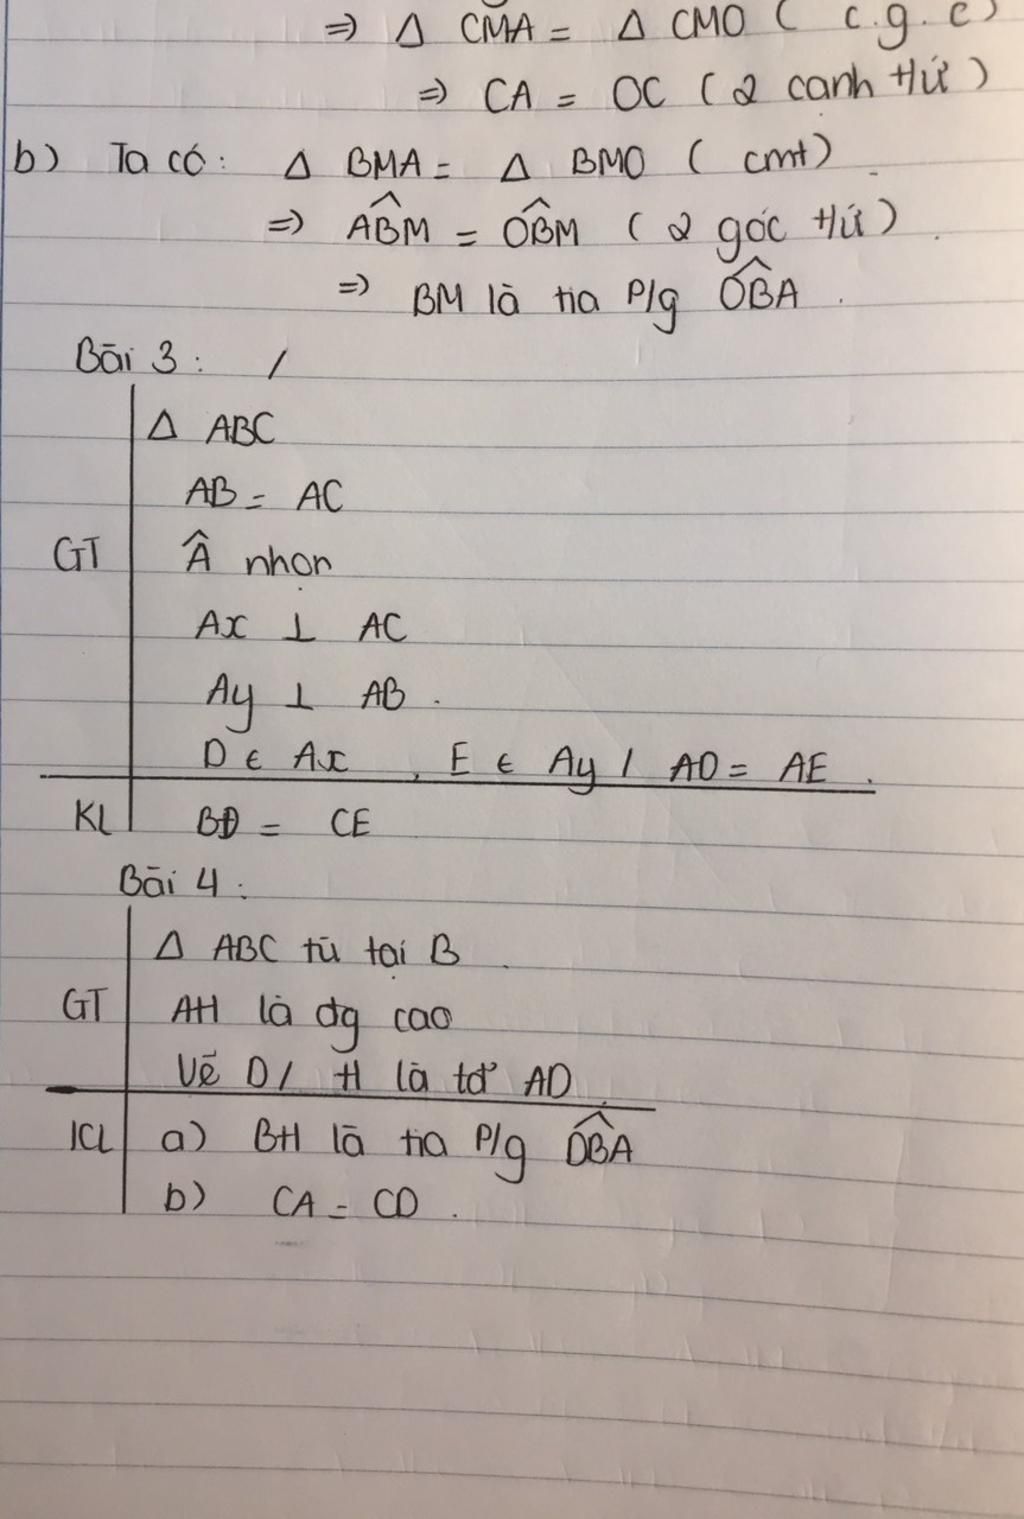 ⇒ Δ CMA = Δ CMO ( c.g.c )
⇒ CA = OC ( 2 cạnh tứ )
b) Ta có: Δ BMA = Δ BMO ( cmt )
⇒ ABM̂ = OBM̂ ( 2 góc tứ ) .
⇒ BM là tia P/g OB̂A .
Bài 3 : /
Δ ABC
AB = AC
GT Â nhọn
Ax ⊥ AC
Ay ⊥ AB .
D ∈ Ax , E ∈ Ay / AD = AE .
KL BD = CE
Bài 4 :
Δ ABC tù tại B .
GT AH là đg cao
Vẽ D / H là tđ AD .
KL a) BH là tia P/g DB̂A
b) CA = CD .